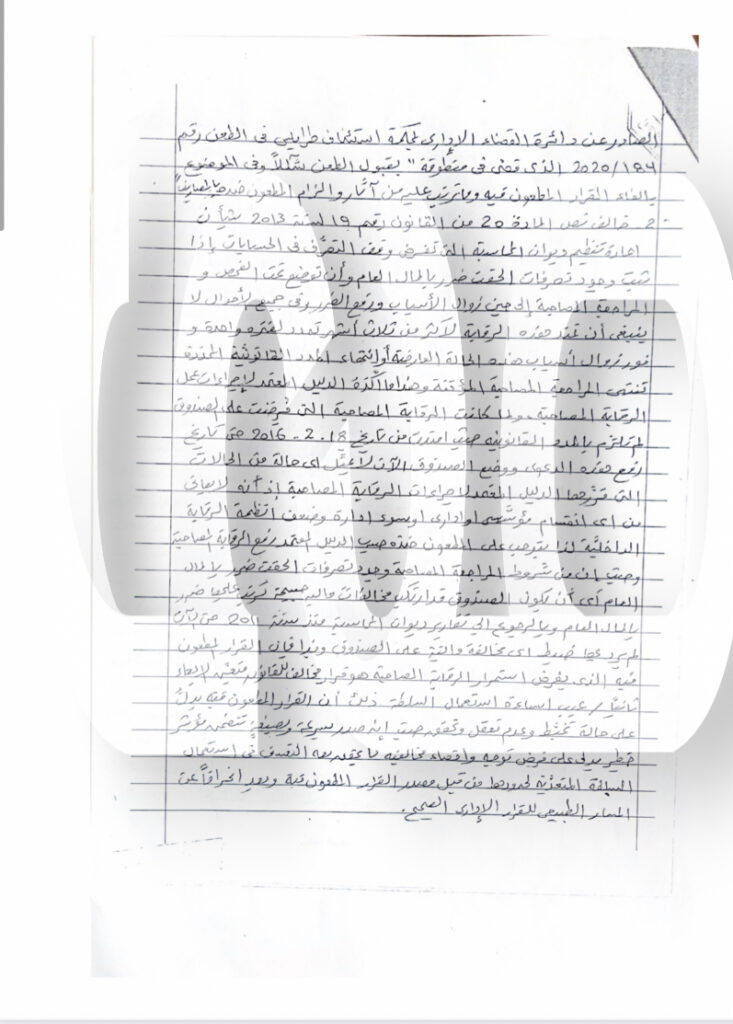 الصادر عن دائرة القضاء الإدارى لمحكمة استئناف طرابلس فى الطعن رقم
184/2020 الذى قضى فى منطوقة " بقبول الطعن شكلاً وفى الموضوع
بالغاء القرار المطعون فيه وماترتب عليه من آثار والزام المطعون ضده بالمصاريف"
2 - خالف نص المادة 20 من القانون رقم 19 لسنة 2013 بشأن
اعادة تنظيم ديوان المحاسبة التى تفرض وقف التصرف فى الحسابات إذا
ثبت وجود تصرفات الحقت ضرر بالمال العام وأن توضع تحت الفحص و
المراجعة المصاحبة إلى حين زوال الأسباب ورفع الضرر وفى جميع الأحوال لا
ينبغى أن تمتد هذه الرقابة لأكثر من ثلاث أشهر تمدد لفتره واحدة و
فور زوال أسباب هذه الحالة العارضة أو إنتهاء المدد القانونية المحددة
تنتهى المراجعة المصاحبة المؤقتة وهذا ما أكدة الدليل المعتمد لإجراءات عمل
الرقابة المصاحبة ولما كانت الرقابة المصاحبة التى فرضت على الصندوق
لم تلتزم بالمدد القانونيه حيث امتدت من تاريخ 18.2-2016 حتى تاريخ
رفع هذه الدعوى ووضع الصندوق الآن لا يمثل اى حالة من الحالات
التى قررها الدليل المعتمد لإجراءات الرقابة المصاحبة إذ أنه لايعانى
من اى انقسام مؤسسى او ادارى او سوء ادارة وضعف انظمة الرقابة
الداخلية لذا يتوجب على المطعون ضده حسب الدليل المعتمد رفع الرقابة المصاحبة
وحيث ان من شروط المراجعة المصاحبة وجود تصرفات الحقت ضرر بالمال
العام أى أن يكون الصندوق قد ارتكب مخالفات مالية جسيمة ترتب عليها ضرر
بالمال العام وبالرجوع الى تقارير ديوان المحاسبة منذ سنة 2011 حتى الآن
لم يرد بها ضبط اى مخالفة مالية على الصندوق وبذا فإن القرار المطعون
فيه الذى يفرض استمرار الرقابة المصاحبة هو قرار مخالف للقانون متعين الإلغاء
ثانياً / عيب اساءة استعمال السلطة ذلك أن القرار المطعون فيه يدل
على حالة تخبط وعدم تعقل وتحقق حيث إنه صدر بسرعة وبصيغة تتضمن مؤشر
خطير يدل على فرض توجه واقصاء مخالفيه بما يعتد به التعسف فى استعمال
السلطة المتعدية لحدودها من قبل مصدر القرار المطعون فيه ويعد انحرافاً عن
المسار الطبيعى للقرار الإدارى الصحيح.